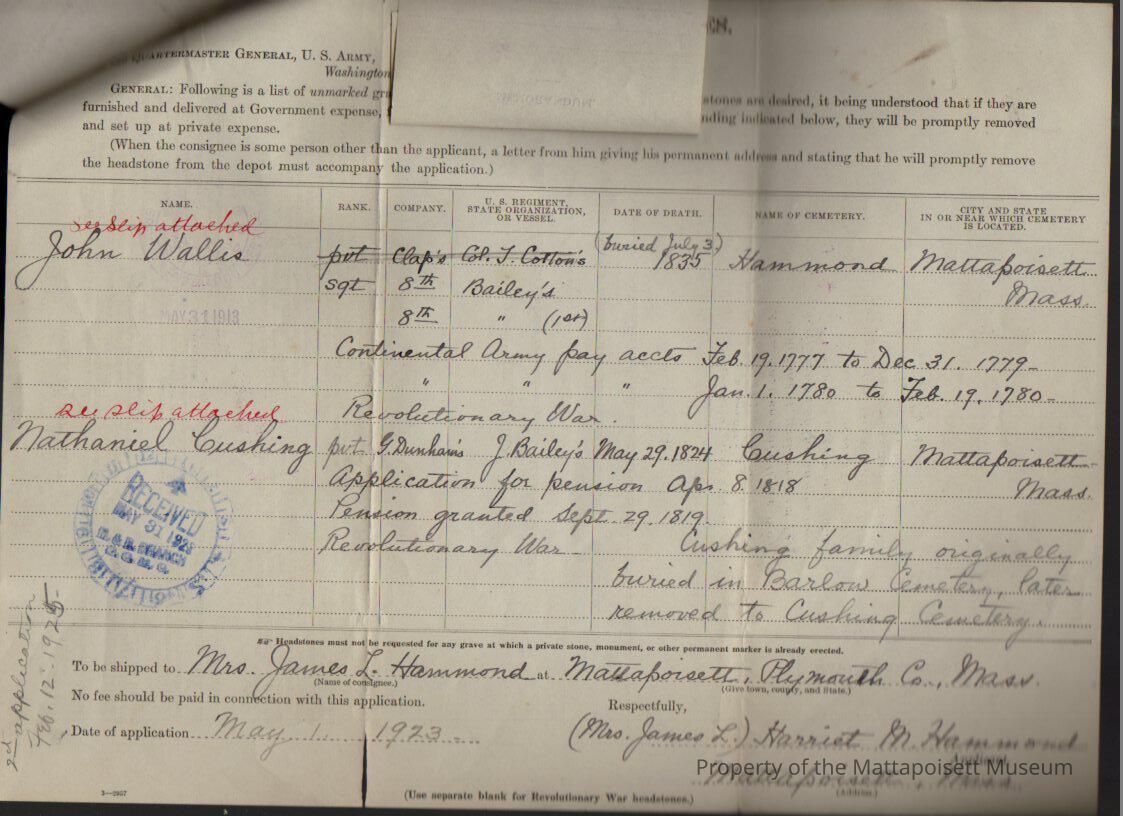 ES.
QUARTERMASTER GENERAL, U. S. ARMY,
Washington
GENERAL: Following is a list of unmarked gr stones are desired, it being understood that if they are
furnished and delivered at Government expense, nding indicated below, they will be promptly removed
and set up at private expense.
(When the consignee is some person other than the applicant, a letter from him giving his permanent address and stating that he will promptly remove
the headstone from the depot must accompany the application.)
NAME. RANK. COMPANY. U. S. REGIMENT, STATE ORGANIZATION, OR VESSEL. DATE OF DEATH. NAME OF CEMETERY. CITY AND STATE IN OR NEAR WHICH CEMETERY IS LOCATED.
see slip attached
(buried July 3,)
John Wallis pvt Clap's Col. T. Cotton's 1835 Hammond Mattapoisett
sgt 8th Bailey's Mass.
8th " (1st)
MAY 31 1913
Continental Army pay accts Feb. 19. 1777 to Dec 31. 1779-
" " " Jan. 1. 1780 to Feb. 19. 1780-
see slip attached Revolutionary War.
Nathaniel Cushing pvt G. Dunham's J. Bailey's May 29. 1824 Cushing Mattapoisett-
Application for pension Apr. 8 1818 Mass.
Pension granted Sept. 29. 1819.
Revolutionary War - Cushing family originally
buried in Barlow Cemetery, later
removed to Cushing Cemetery.
RECEIVED
MAY 31 1923
BRANCH
Headstones must not be requested for any grave at which a private stone, monument, or other permanent marker is already erected.
To be shipped to Mrs. James L. Hammond at Mattapoisett, Plymouth Co., Mass.
(Name of consignee.) (Give town, county, and State.)
No fee should be paid in connection with this application. Respectfully,
Date of application May 1. 1923 - (Mrs. James L.) Harriet M. Hammond
Applicant.
Mattapoisett, Mass
(Address.)
2nd application
Feb. 12. 1925-
3—2057
(Use separate blank for Revolutionary War headstones.)
Property of the Mattapoisett Museum